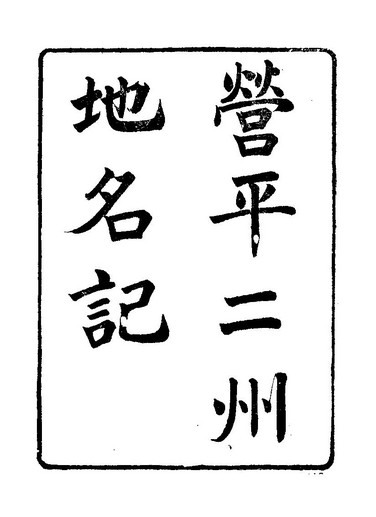 營平二州
地名記